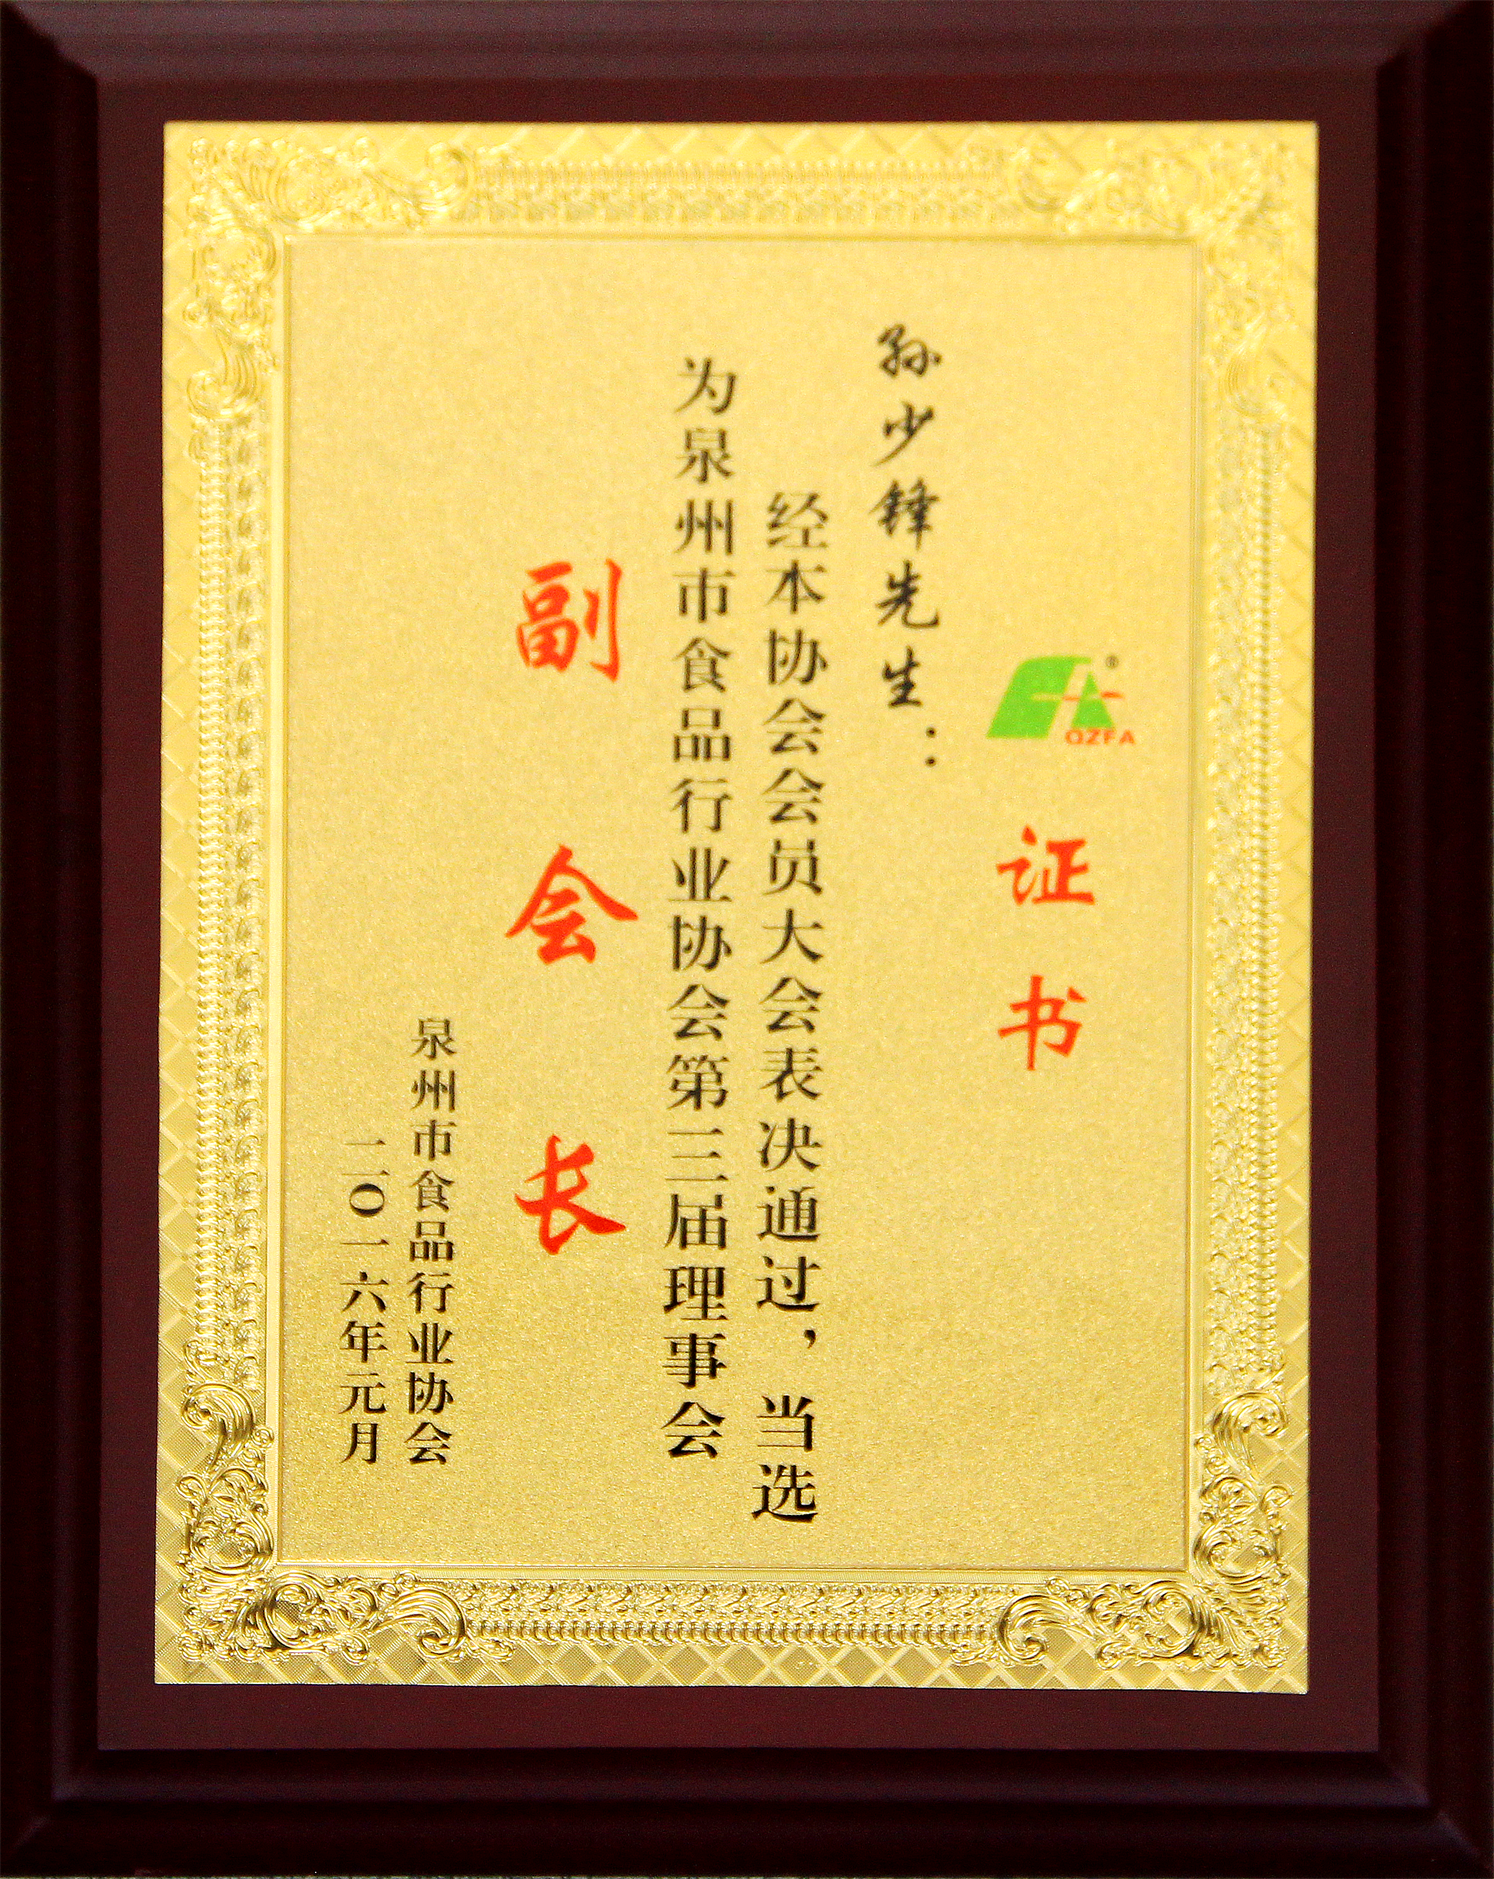 ®
QZFA
证书
孙少锋先生：
经本协会会员大会表决通过，当选
为泉州市食品行业协会第三届理事会
副会长
泉州市食品行业协会
二〇一六年元月